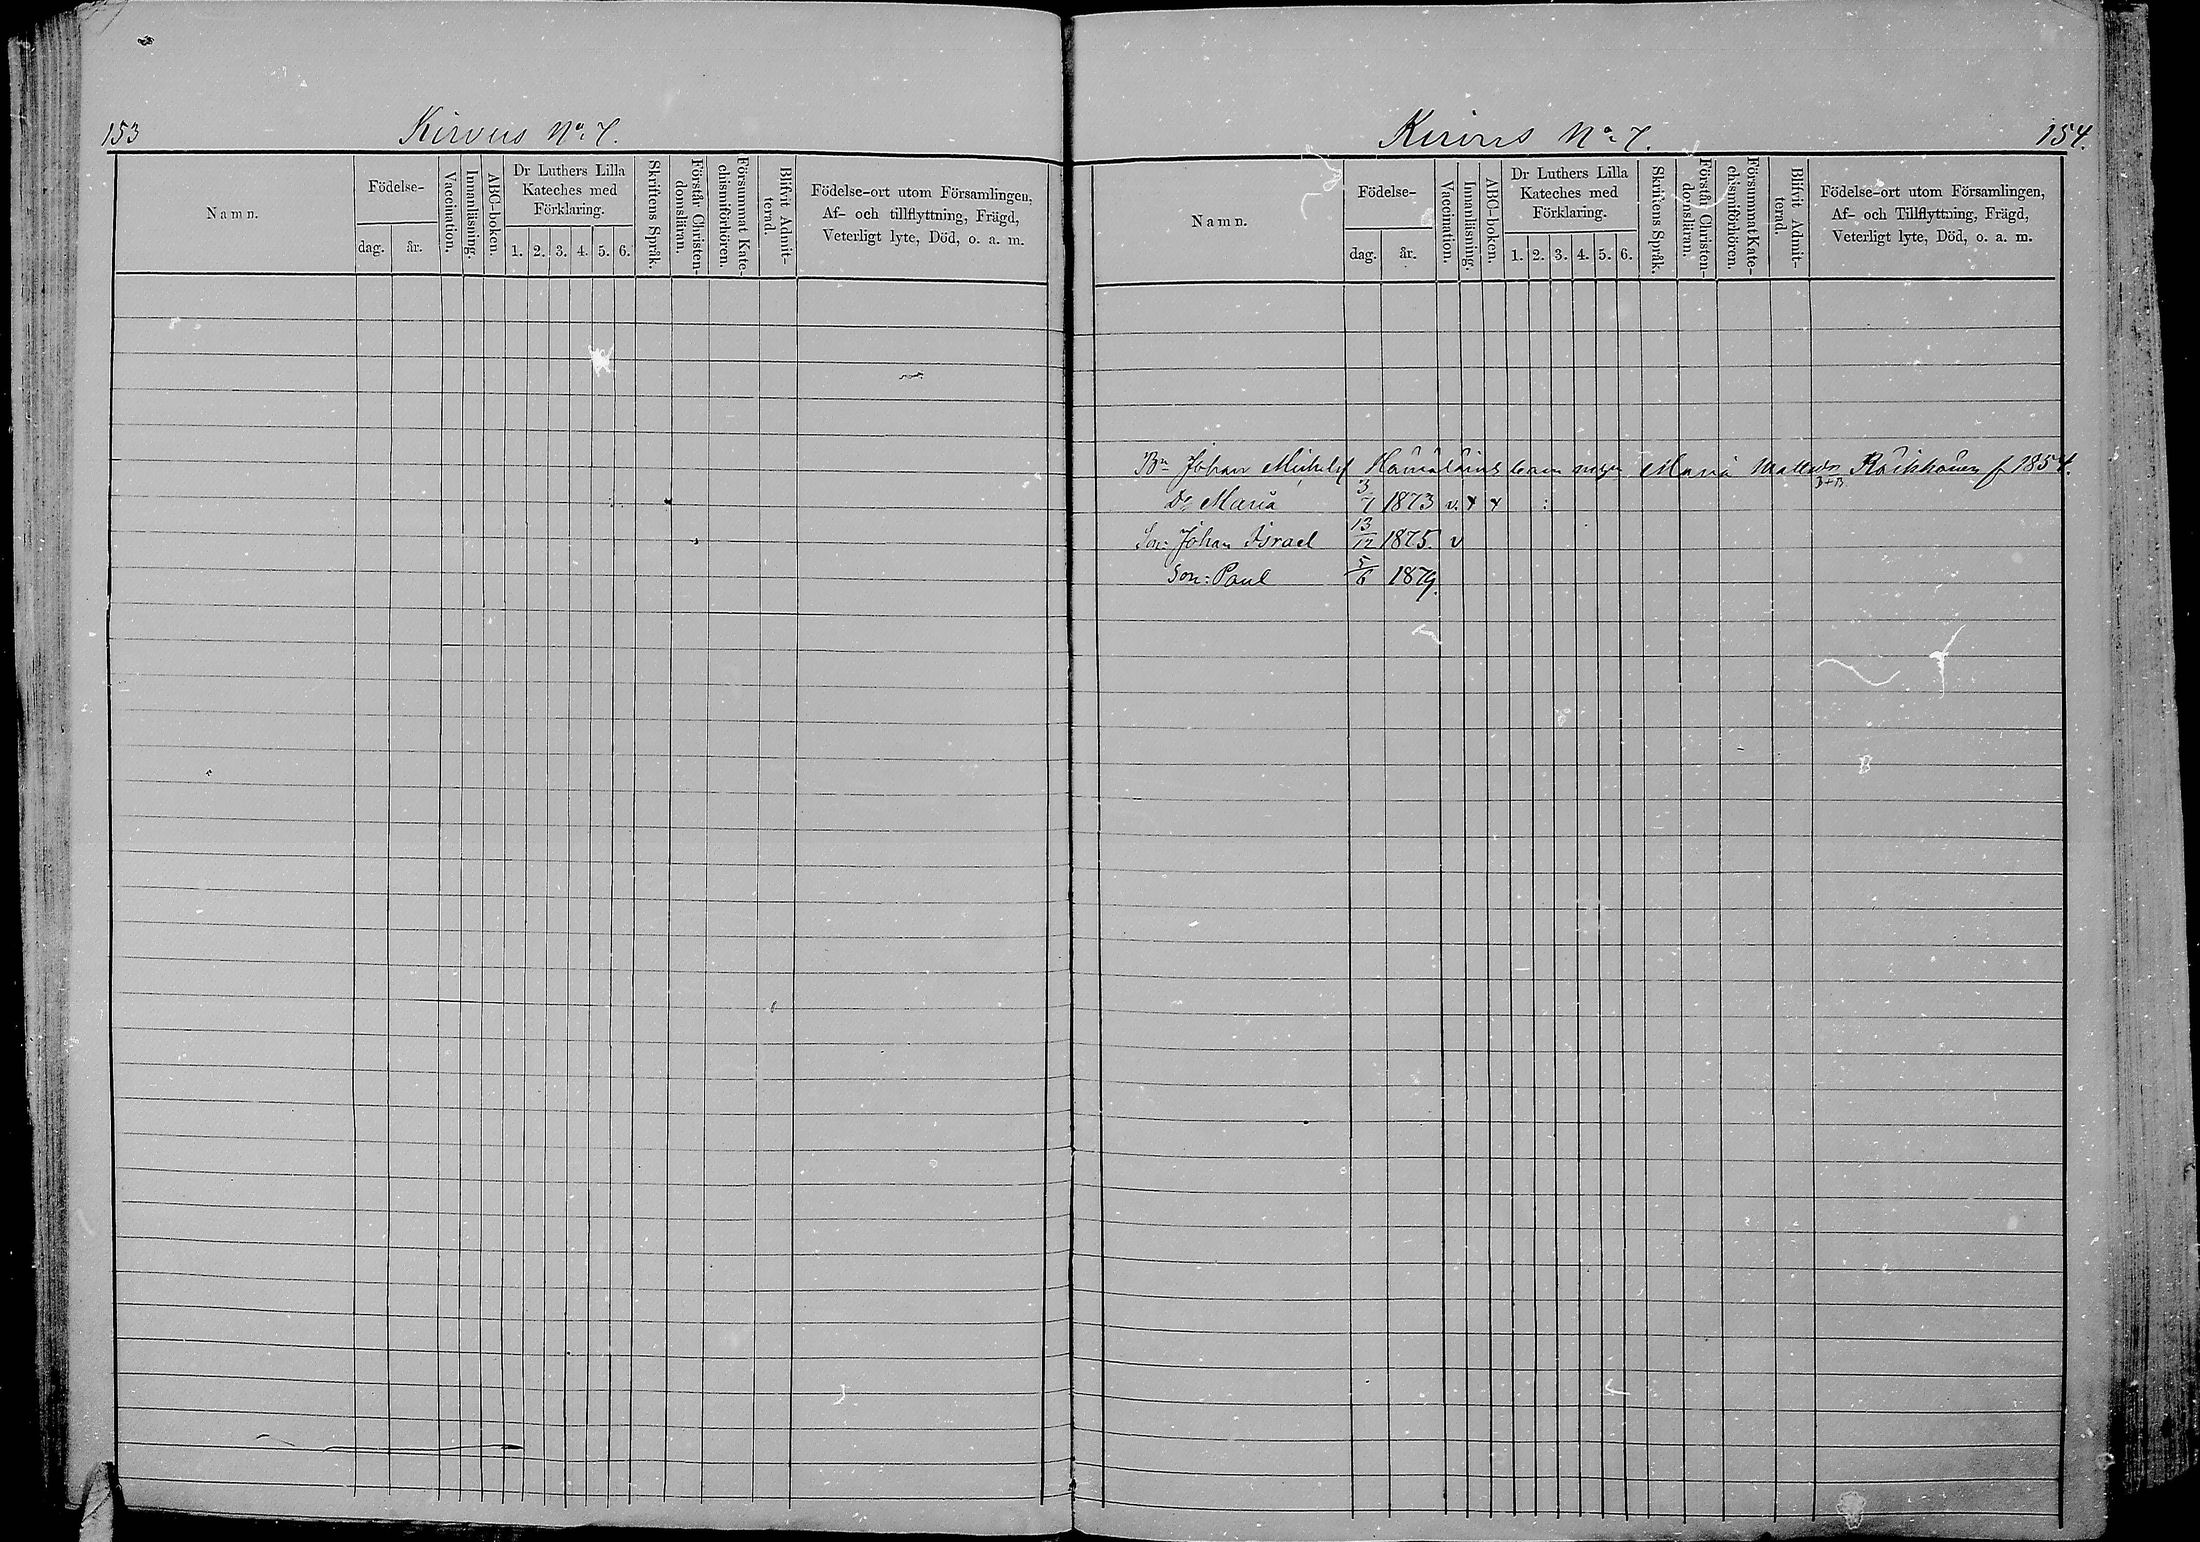 153
Kirvus No 7.
Namn.
Födelse-
dag.
år.
Vaccination.
Innanläsning.
ABC-boken.
Dr Luthers Lilla
Kateches med
Förklaring.
1. 2. 3. 4. 5. 6.
Skriftens Språk.
Förstår Christen-
domsläran.
Försummat Kate-
chismiförhören.
Blifvit Admit-
terad.
Födelse-ort utom Församlingen,
Af- och tillflyttning, Frägd,
Veterligt lyte, Död, o. a. m.
Kirvus No 7.
154.
Namn.
Födelse-
dag.
år.
Vaccination.
Innanläsning.
ABC-boken.
Dr Luthers Lilla
Kateches med
Förklaring.
1. 2. 3. 4. 5. 6.
Skriftens Språk.
Förstår Christen-
domsläran.
Försummat Kate-
chismiförhören.
Blifvit Admit-
terad.
Födelse-ort utom Församlingen,
Af- och Tillflyttning, Frägd,
Veterligt lyte, Död, o. a. m.
Bn Johan Michelsf Hämäläins barn Maria Mattsdr f 1854.
Dr Maria 3/7 1873 v. + +
Son: Johan Israel 13/12 1875. v
Son: Paul 5/6 1879.